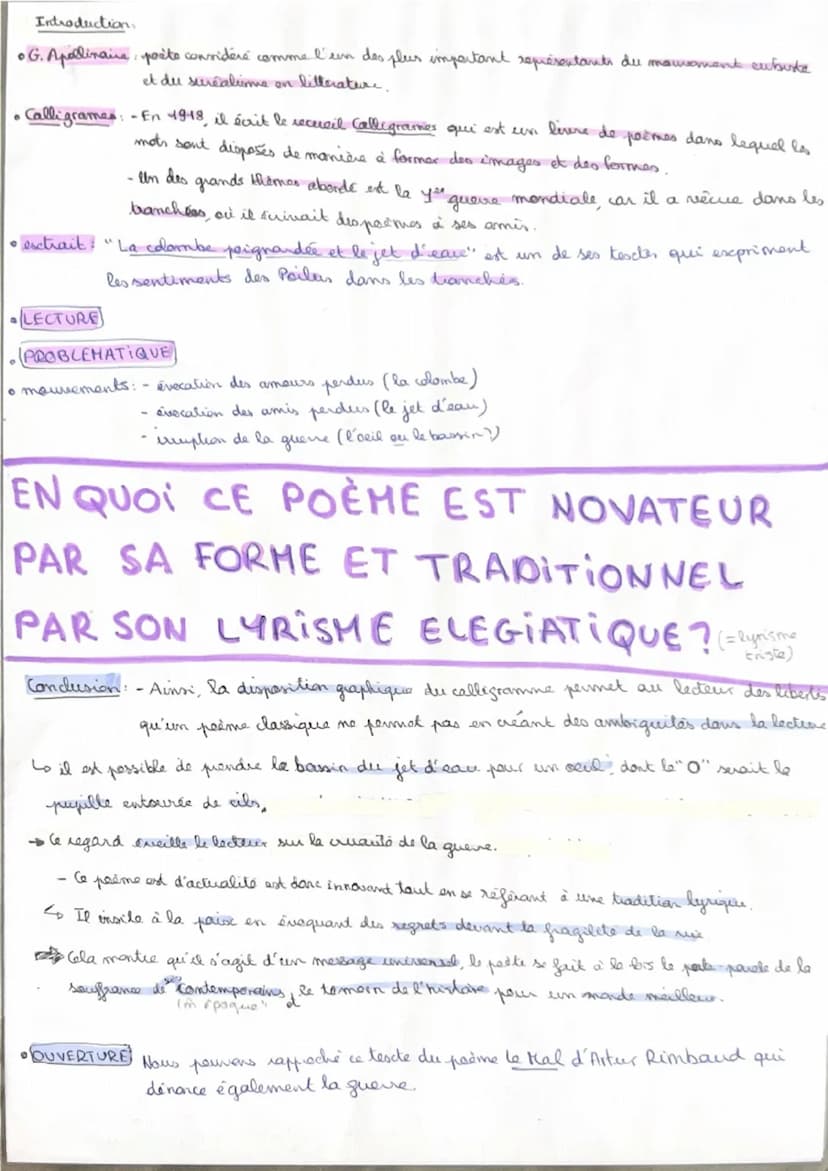 Introduction.
• G. Apollinaire : poète considéré comme l'un des plus important représentants du mouvement cubiste
et du suréalisme en littérature.
• Calligrames : - En 1918, il écrit le recueil Calligrames qui est un livre de poèmes dans lequel les
mots sont disposés de manière à former des images et des formes.
- Un des grands thèmes abordé est la 1ère guerre mondiale, car il a vécue dans les
tranchées, où il écrivait des poèmes à ses amis.
• extrait : "La colombe poignardée et le jet d'eau" est un de ses textes qui expriment
les sentiments des Poilus dans les tranchés.
• LECTURE
• PROBLEMATIQUE
• mouvements : - évocation des amours perdus (la colombe)
- évocation des amis perdus (le jet d'eau)
- irruption de la guerre (l'oeil ou le bassin ?)
EN QUOI CE POÈME EST NOVATEUR
PAR SA FORME ET TRADITIONNEL
PAR SON LYRISME ELEGIATIQUE ? (= lyrisme
triste)
Conclusion : - Ainsi, la disposition graphique du calligramme permet au lecteur des libertés
qu'un poème classique ne permet pas en créant des ambiguités dans la lecture
↳ il est possible de prendre le bassin du jet d'eau pour un oeil, dont le "O" serait la
pupille entourée de cils.
→ Ce regard éveille le lecteur sur la cruauté de la guerre.
- Ce poème est d'actualité est donc innovant tout en se référant à une tradition lyrique.
↳ Il invite à la paix en évoquant des regrets devant la fragilité de la vie
⇒ Cela montre qu'il s'agit d'un message universel, le poète se fait à la fois le porte-parole de la
souffrance de ses contemporains, le temoin de l'histoire pour un monde meilleur.
(m époque) et
• OUVERTURE Nous pouvons rapproché ce texte du poème Le Mal d'Artur Rimbaud qui
dénonce également la guerre.